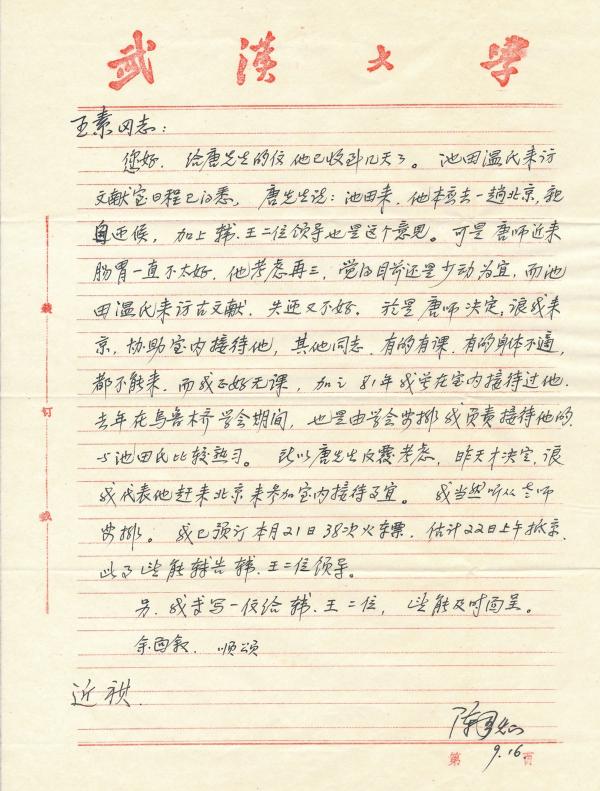 武汉大学
王素同志：
您好。给唐先生的信他已收到几天了。池田温氏来访
文献室日程已洽悉，唐先生说：池田来，他本应去一趟北京，亲
自迎候，加上韩、王二位领导也是这个意见。可是唐师近来
肠胃一直不太好，他考虑再三，觉得目前还是少动为宜，而池
田温氏来访古文献，失迎又不好。于是唐师决定，派我来
京，协助室内接待他，其他同志，有的有课，有的身体不适，
都不能来，而我正好无课，加之81年我曾在室内接待过他，
去年在乌鲁木齐学会期间，也是由学会安排我负责接待他的，
与池田氏比较熟习。所以唐先生反覆考虑，昨天才决定，派
我代表他赶来北京来参加室内接待事宜。我当然听从老师
安排。我已预订本月21日38次火车票，估计22日上午抵京，
此事望能转告韩、王二位领导。
另，我书写一信给韩、王二位，望能及时面呈。
余面叙，顺颂
近祺。
陈国灿
9.16
第 页
装
订
线